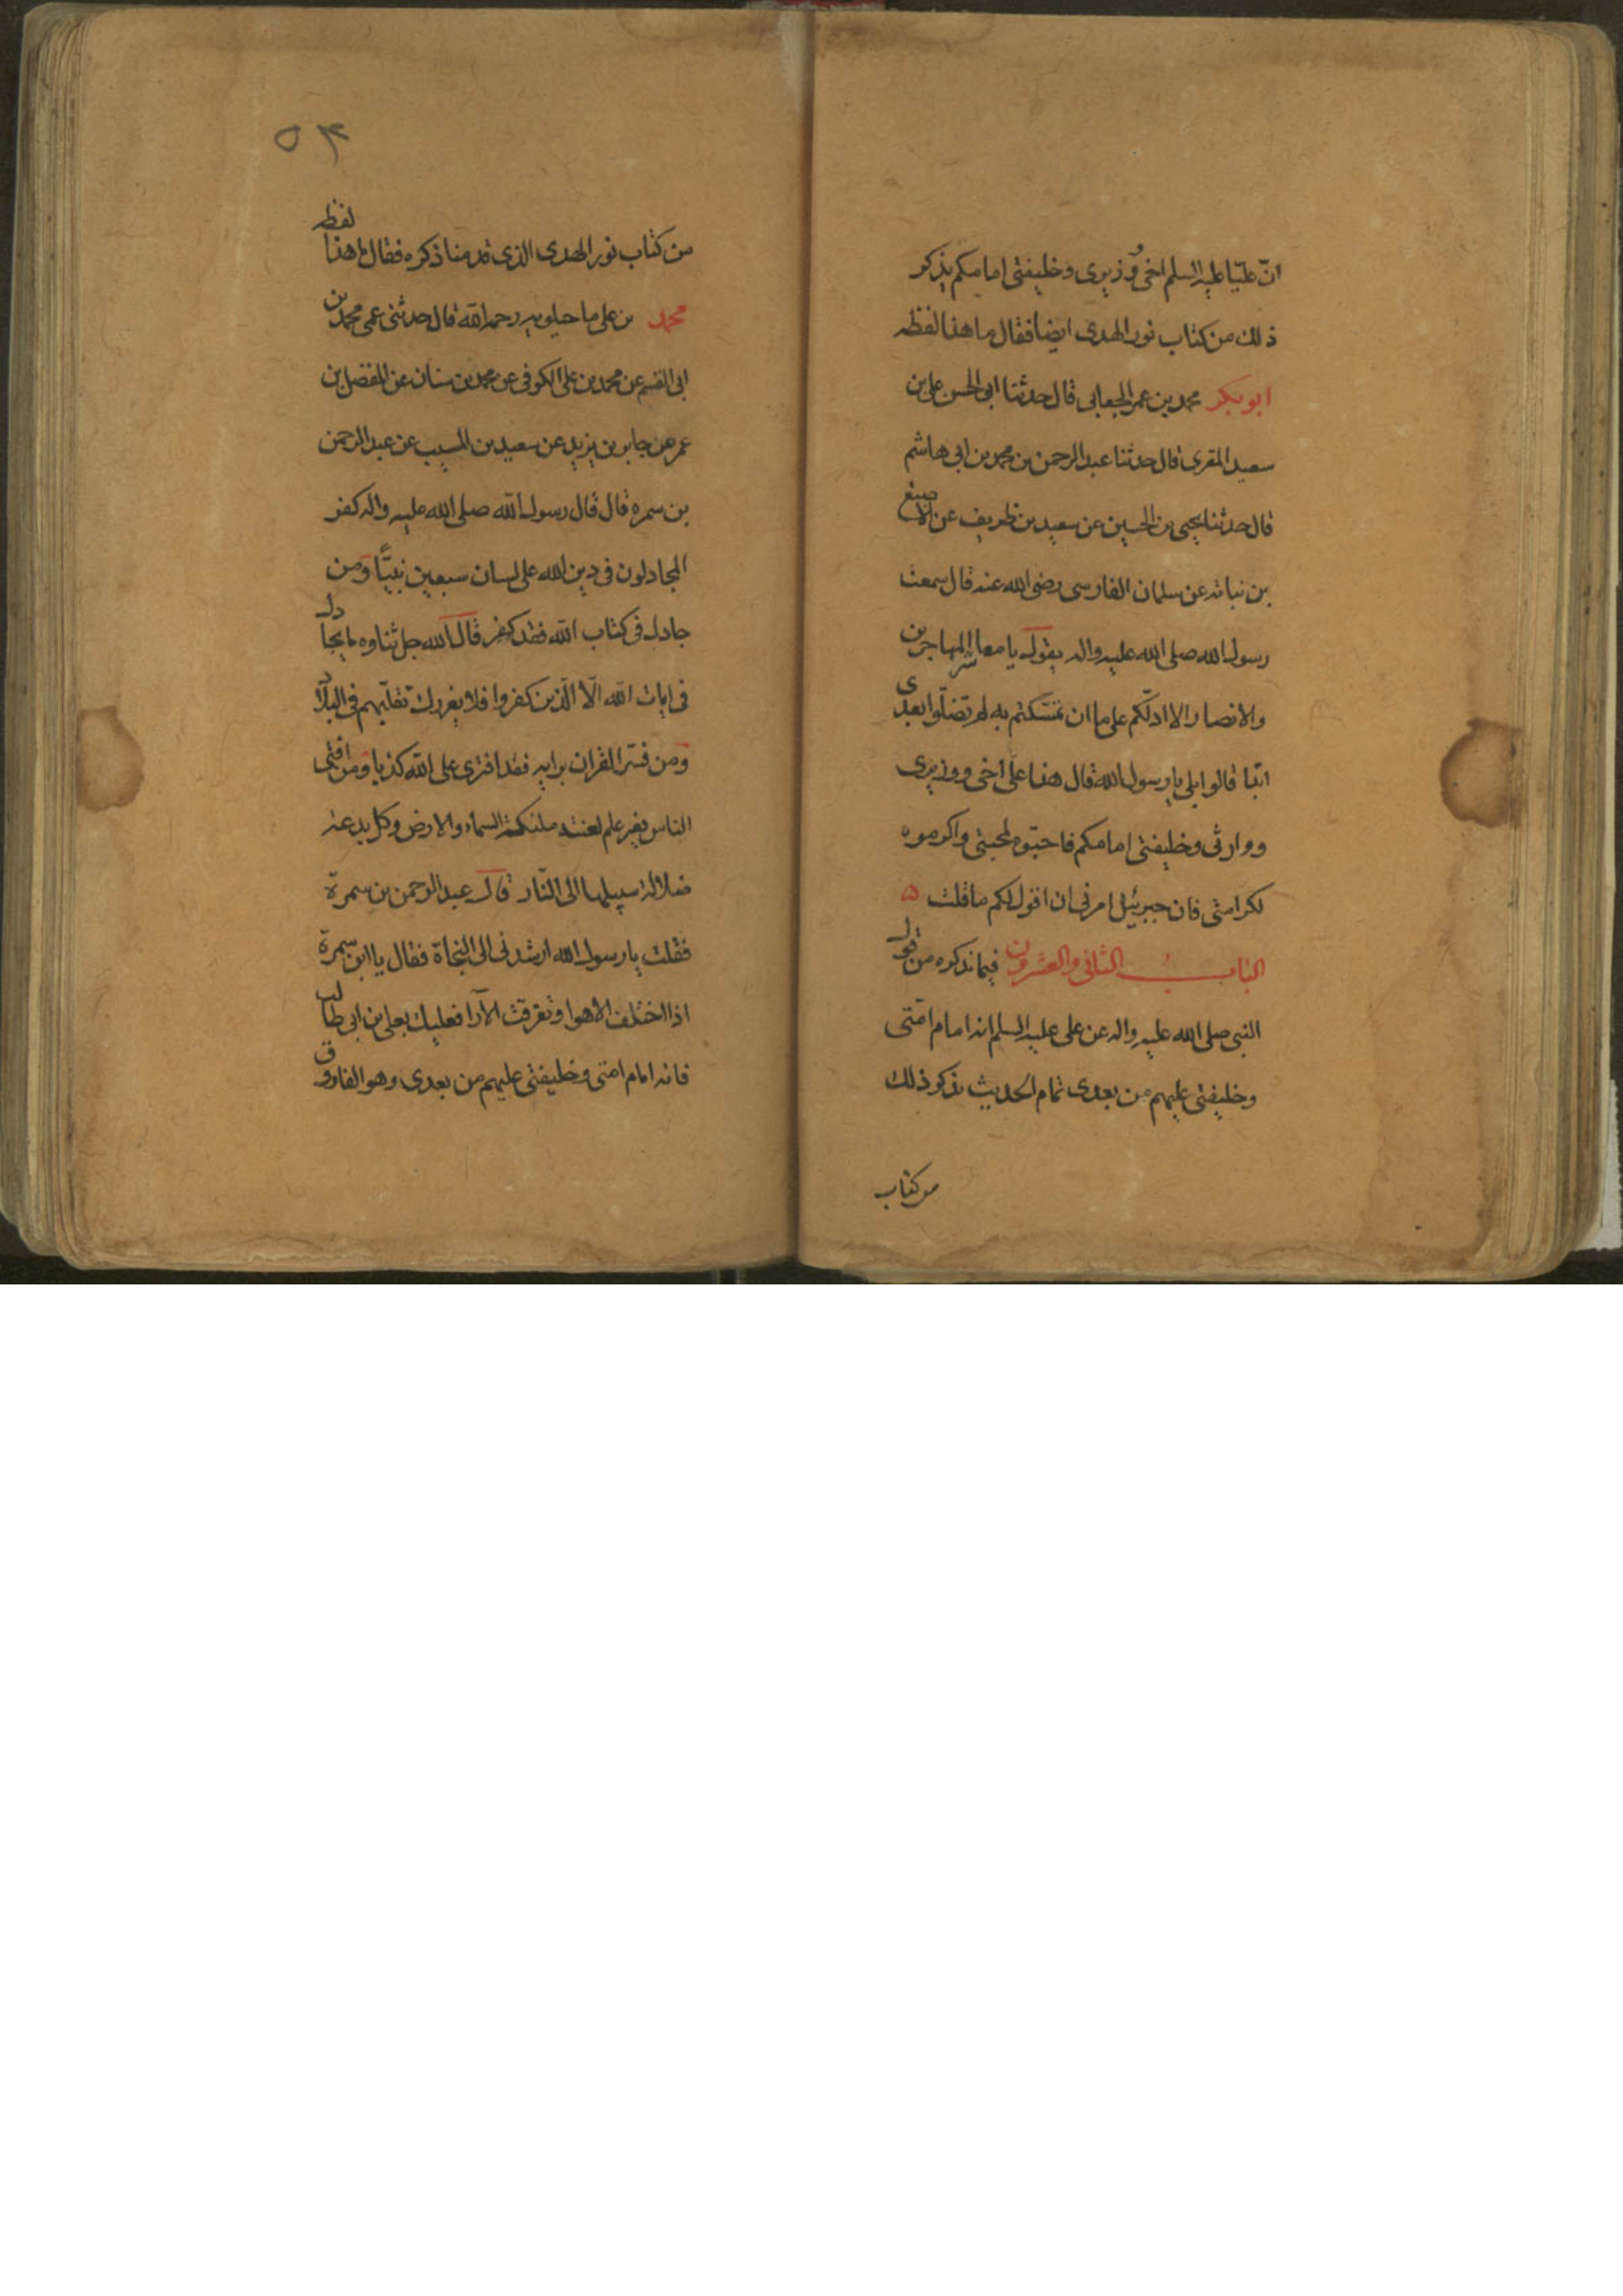 انّ عليّا عليه السلم اخى ووزيرى وخليفتى امامكم يذكر
ذلك من كتاب نور الهدى ايضا فقال ما هذا لفظه
ابو بكر محمد بن عمر الجعابى قال حدثنا ابو الحسن على بن
سعيد المقرى قال حدثنا عبد الرحمن بن محمد بن ابى هاشم
قال حدثنا يحيى بن الحسين عن سعيد بن ظريف عن الاصبغ
بن نباته عن سلمان الفارسى رضى الله عنه قال سمعت
رسول الله صلى الله عليه واله يقول يا معاشر المهاجرين
والانصار الا ادلّكم على ما ان تمسّكتم به لم تضلّوا بعدى
ابدا قالوا بلى يا رسول الله قال هذا علىّ اخى ووزيرى
ووارثى وخليفتى امامكم فاحبّوه لمحبتى واكرموه
لكرامتى فان جبرئيل امرنى ان اقول لكم ما قلت ه
الباب الثانى والعشرون فيما نذكره من قول
النبى صلى الله عليه واله عن على عليه السلم انه امام امّتى
وخليفتى عليهم من بعدى تمام الحديث نذكر ذلك
من كتاب
٥٣
من كتاب نور الهدى الذى قدمنا ذكره فقال ما هذا لفظه
محمد بن على ماجيلويه رحمه الله قال حدثنى عمى محمد بن
ابى القسم عن محمد بن على الكوفى عن محمد بن سنان عن المفضل بن
عمر عن جابر بن يزيد عن سعيد بن المسيب عن عبد الرحمن
بن سمره قال قال رسول الله صلى الله عليه واله كفر
المجادلون فى دين الله على لسان سبعين نبيّا ومن
جادل فى كتاب الله فقد كفر قال الله جل ثناوه ما يجادل
فى ايات الله الّا الّذين كفروا فلا يغررك تقلّبهم فى البلاد
ومن فسّر القران برايه فقد افترى على الله كذبا ومن افتى
الناس بغير علم لعنته ملئكة السماء والارض وكل بدعة
ضلالة سبيلها الى النّار قال عبد الرحمن بن سمرة
فقلت يا رسول الله ارشدنى الى النجاة فقال يا ابن سمرة
اذا اختلف الاهوا وتفرقت الآرا فعليك بعلى بن ابى طالب
فانه امام امتى وخليفتى عليهم من بعدى وهو الفاروق